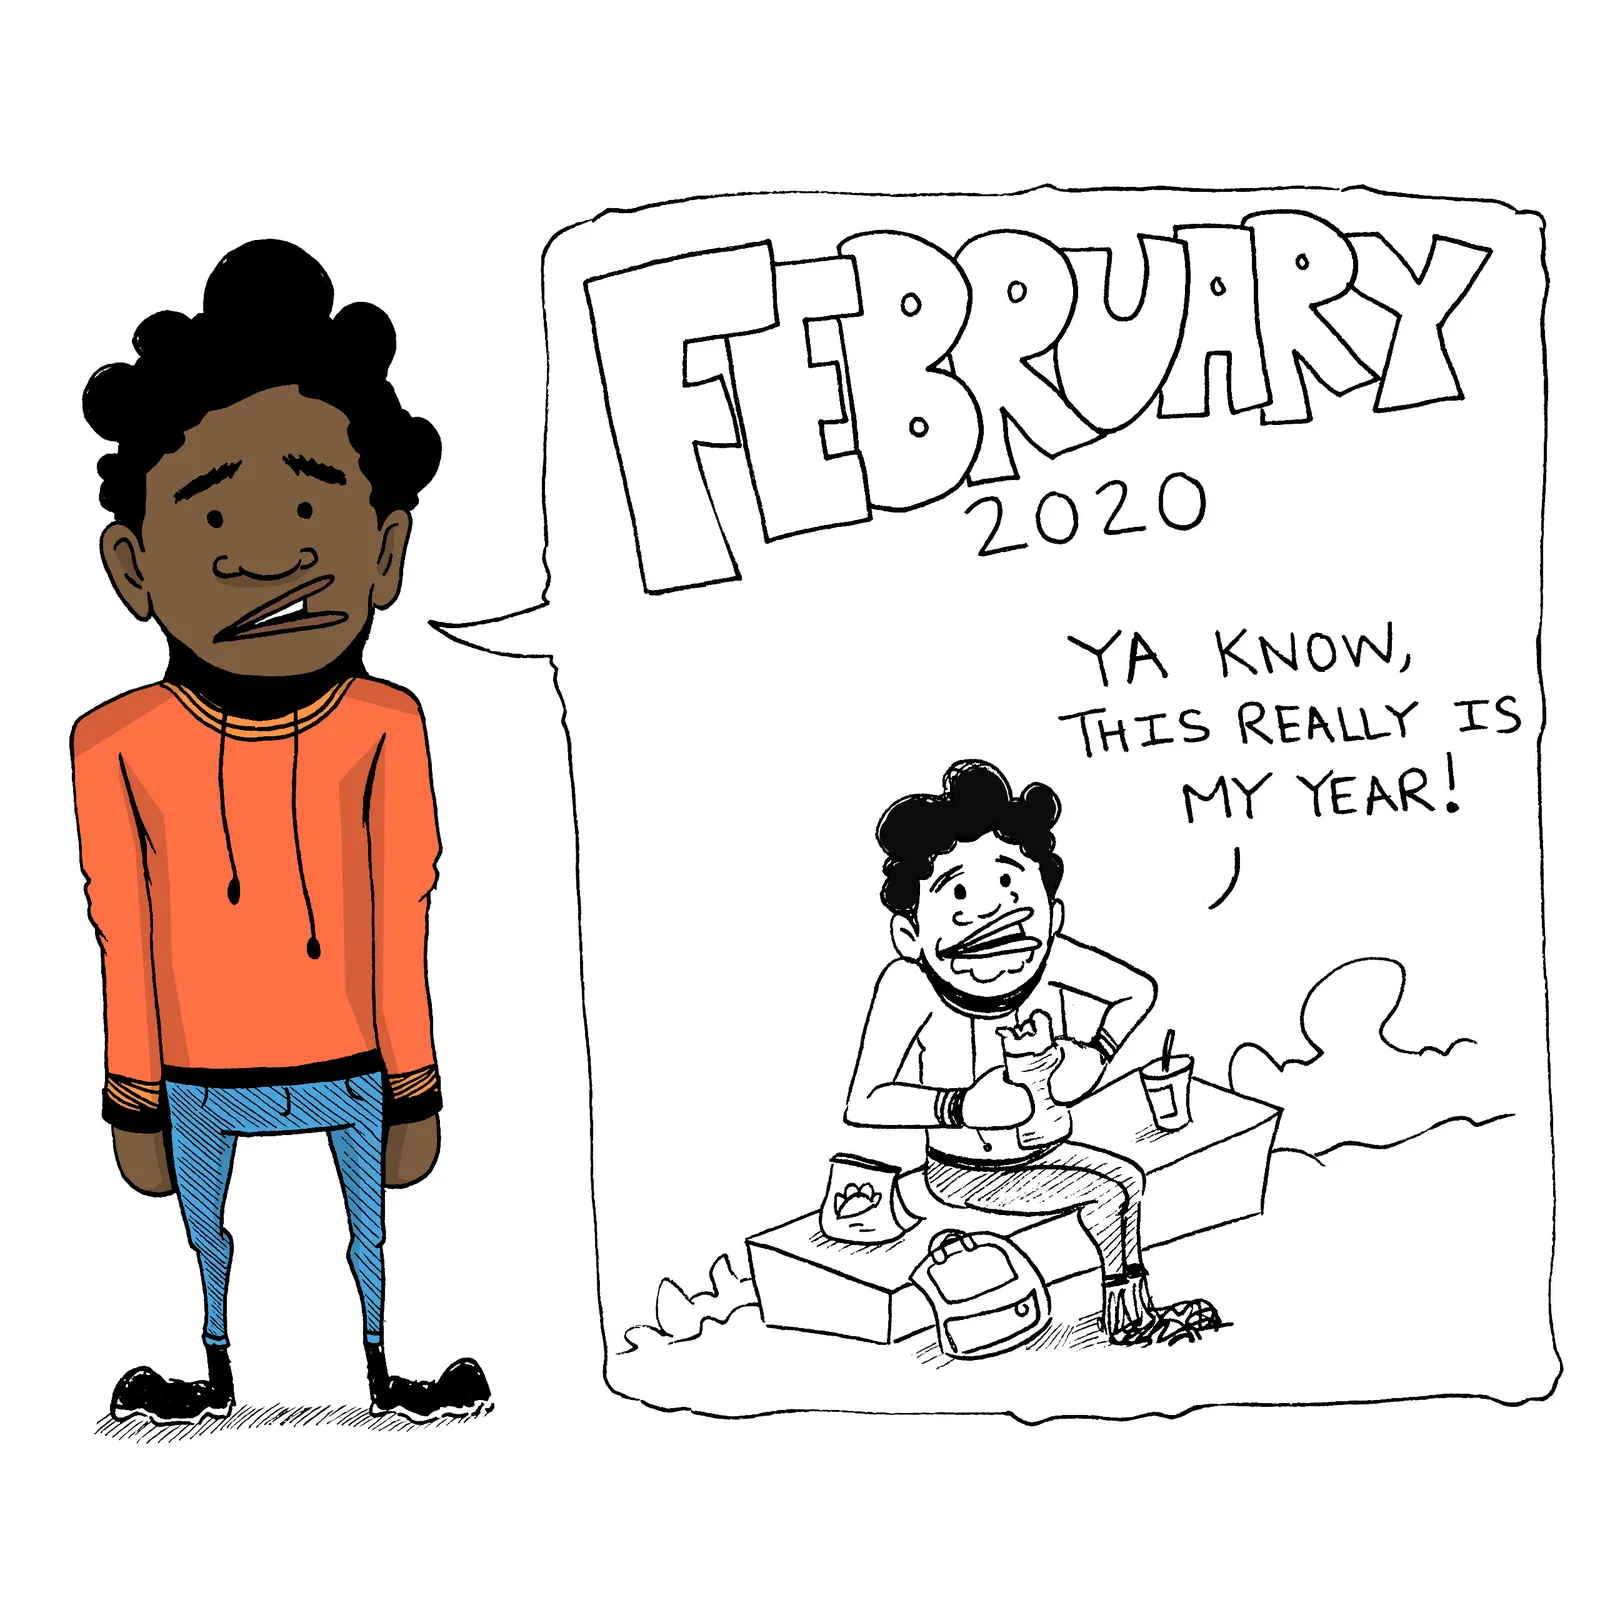 FEBRUARY
2020
YA KNOW,
THIS REALLY IS
MY YEAR!